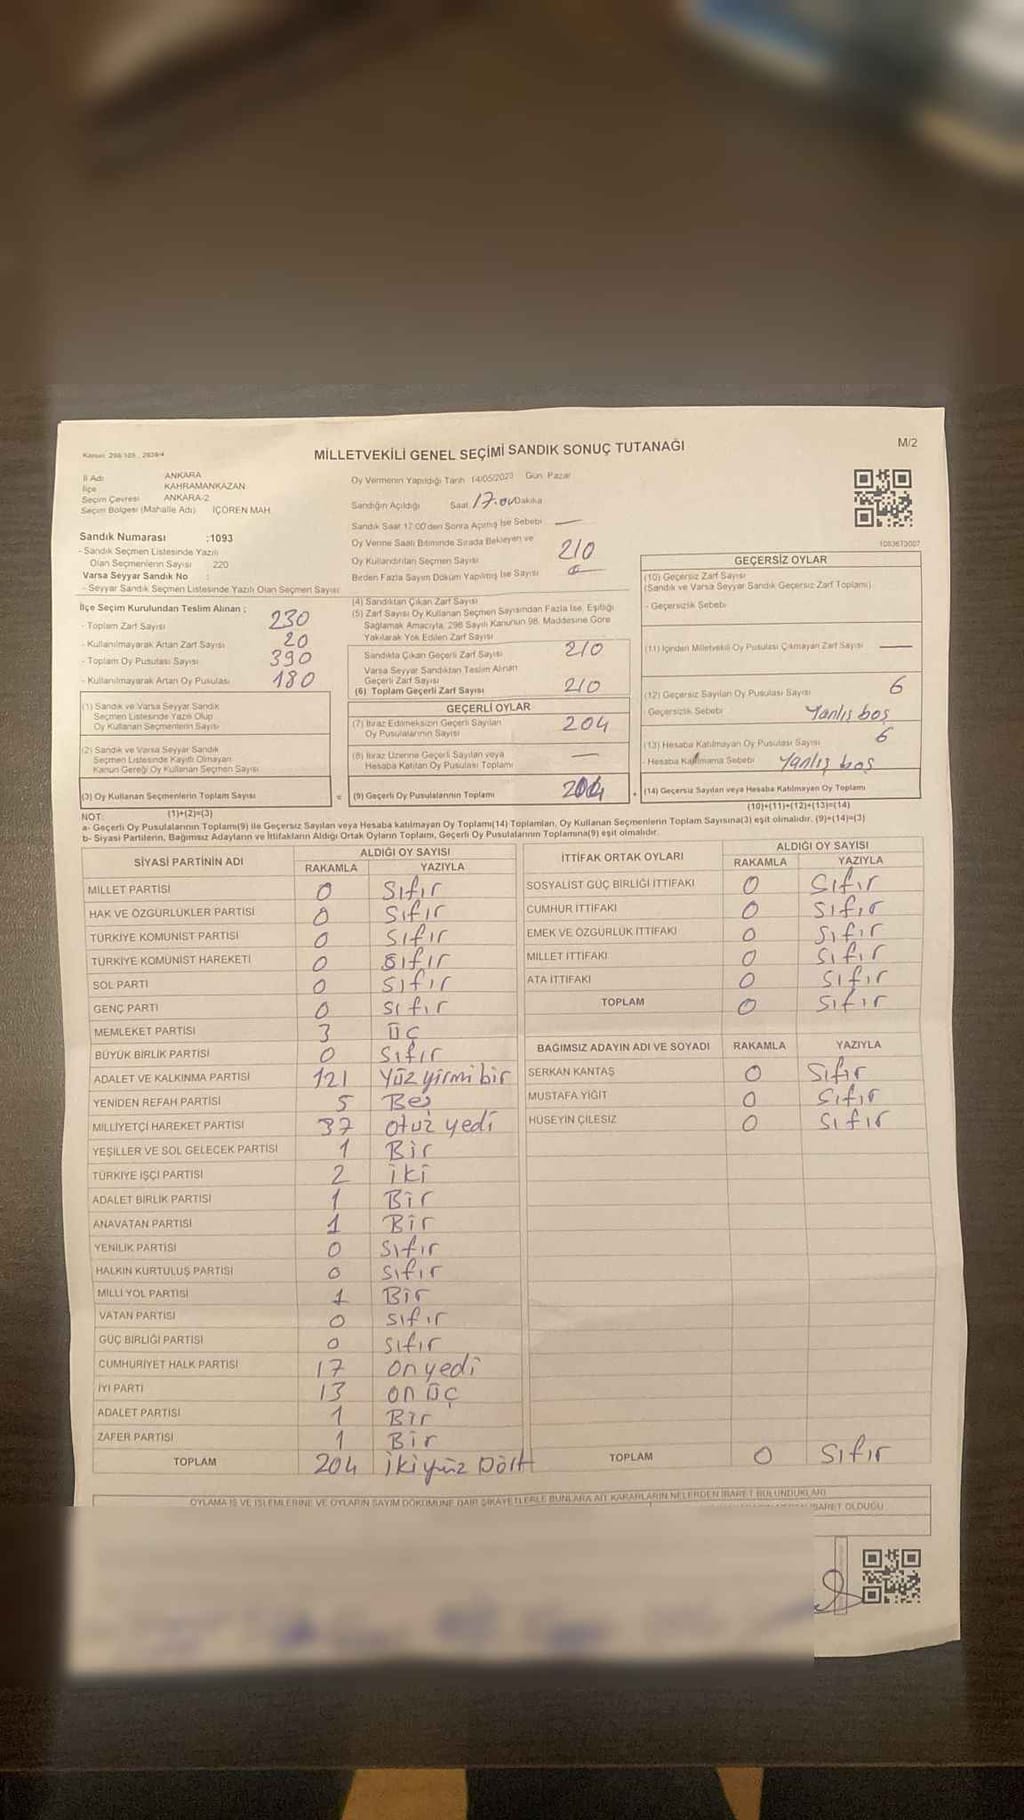 Kanun: 298/105 , 2839/4
MİLLETVEKİLİ GENEL SEÇİMİ SANDIK SONUÇ TUTANAĞI
M/2
İl Adı ANKARA
İlçe KAHRAMANKAZAN
Seçim Çevresi ANKARA-2
Seçim Bölgesi (Mahalle Adı) İÇÖREN MAH.
Oy Vermenin Yapıldığı Tarih 14/05/2023 Gün Pazar
Sandığın Açıldığı Saat 17.00 Dakika
Sandık Saat 17:00'den Sonra Açılmış İse Sebebi —
Oy Verme Saati Bitiminde Sırada Bekleyen ve
Oy Kullandırılan Seçmen Sayısı 210
Birden Fazla Sayım Döküm Yapılmış İse Sayısı
Sandık Numarası :1093
- Sandık Seçmen Listesinde Yazılı
Olan Seçmenlerin Sayısı 220
Varsa Seyyar Sandık No :
- Seyyar Sandık Seçmen Listesinde Yazılı Olan Seçmen Sayısı
İlçe Seçim Kurulundan Teslim Alınan ;
- Toplam Zarf Sayısı 230
- Kullanılmayarak Artan Zarf Sayısı 20
- Toplam Oy Pusulası Sayısı 390
- Kullanılmayarak Artan Oy Pusulası 180
(1) Sandık ve Varsa Seyyar Sandık
Seçmen Listesinde Yazılı Olup
Oy Kullanan Seçmenlerin Sayısı
(2) Sandık ve Varsa Seyyar Sandık
Seçmen Listesinde Kayıtlı Olmayan
Kanun Gereği Oy Kullanan Seçmen Sayısı
(3) Oy Kullanan Seçmenlerin Toplam Sayısı =
(4) Sandıktan Çıkan Zarf Sayısı
(5) Zarf Sayısı Oy Kullanan Seçmen Sayısından Fazla İse, Eşitliği
Sağlamak Amacıyla, 298 Sayılı Kanunun 98. Maddesine Göre
Yakılarak Yok Edilen Zarf Sayısı
Sandıkta Çıkan Geçerli Zarf Sayısı 210
Varsa Seyyar Sandıktan Teslim Alınan
Geçerli Zarf Sayısı
(6) Toplam Geçerli Zarf Sayısı 210
GEÇERLİ OYLAR
(7) İtiraz Edilmeksizin Geçerli Sayılan
Oy Pusulalarının Sayısı 204
(8) İtiraz Üzerine Geçerli Sayılan veya
Hesaba Katılan Oy Pusulası Toplamı —
(9) Geçerli Oy Pusulalarının Toplamı 204 +
GEÇERSİZ OYLAR
(10) Geçersiz Zarf Sayısı
(Sandık ve Varsa Seyyar Sandık Geçersiz Zarf Toplamı)
- Geçersizlik Sebebi
(11) İçinden Milletvekili Oy Pusulası Çıkmayan Zarf Sayısı —
(12) Geçersiz Sayılan Oy Pusulası Sayısı 6
- Geçersizlik Sebebi Yanlış boş
(13) Hesaba Katılmayan Oy Pusulası Sayısı 6
- Hesaba Katılmama Sebebi Yanlış boş
(14) Geçersiz Sayılan veya Hesaba Katılmayan Oy Toplamı
NOT: (1)+(2)=(3) (10)+(11)+(12)+(13)=(14)
a- Geçerli Oy Pusulalarının Toplamı(9) ile Geçersiz Sayılan veya Hesaba katılmayan Oy Toplamı(14) Toplamları, Oy Kullanan Seçmenlerin Toplam Sayısına(3) eşit olmalıdır. (9)+(14)=(3)
b- Siyasi Partilerin, Bağımsız Adayların ve İttifakların Aldığı Ortak Oyların Toplamı, Geçerli Oy Pusulalarının Toplamına(9) eşit olmalıdır.
SİYASİ PARTİNİN ADI ALDIĞI OY SAYISI
RAKAMLA YAZIYLA
MİLLET PARTİSİ 0 Sıfır
HAK VE ÖZGÜRLÜKLER PARTİSİ 0 Sıfır
TÜRKİYE KOMÜNİST PARTİSİ 0 Sıfır
TÜRKİYE KOMÜNİST HAREKETİ 0 Sıfır
SOL PARTİ 0 Sıfır
GENÇ PARTİ 0 Sıfır
MEMLEKET PARTİSİ 3 Üç
BÜYÜK BİRLİK PARTİSİ 0 Sıfır
ADALET VE KALKINMA PARTİSİ 121 Yüz yirmi bir
YENİDEN REFAH PARTİSİ 5 Beş
MİLLİYETÇİ HAREKET PARTİSİ 37 otuz yedi
YEŞİLLER VE SOL GELECEK PARTİSİ 1 Bir
TÜRKİYE İŞÇİ PARTİSİ 2 iki
ADALET BİRLİK PARTİSİ 1 Bir
ANAVATAN PARTİSİ 1 Bir
YENİLİK PARTİSİ 0 Sıfır
HALKIN KURTULUŞ PARTİSİ 0 Sıfır
MİLLİ YOL PARTİSİ 1 Bir
VATAN PARTİSİ 0 sıfır
GÜÇ BİRLİĞİ PARTİSİ 0 sıfır
CUMHURİYET HALK PARTİSİ 17 on yedi
İYİ PARTİ 13 on üç
ADALET PARTİSİ 1 Bir
ZAFER PARTİSİ 1 Bir
TOPLAM 204 ikiyüz Dört
İTTİFAK ORTAK OYLARI ALDIĞI OY SAYISI
RAKAMLA YAZIYLA
SOSYALİST GÜÇ BİRLİĞİ İTTİFAKI 0 Sıfır
CUMHUR İTTİFAKI 0 Sıfır
EMEK VE ÖZGÜRLÜK İTTİFAKI 0 Sıfır
MİLLET İTTİFAKI 0 Sıfır
ATA İTTİFAKI 0 Sıfır
TOPLAM 0 Sıfır
BAĞIMSIZ ADAYIN ADI VE SOYADI RAKAMLA YAZIYLA
SERKAN KANTAŞ 0 Sıfır
MUSTAFA YİĞİT 0 Sıfır
HÜSEYİN ÇİLESİZ 0 Sıfır
TOPLAM 0 Sıfır
OYLAMA İŞ VE İŞLEMLERİNE VE OYLARIN SAYIM DÖKÜMÜNE DAİR ŞİKAYETLERLE BUNLARA AİT KARARLARIN NELERDEN İBARET BULUNDUKLARI
İBARET OLDUĞU